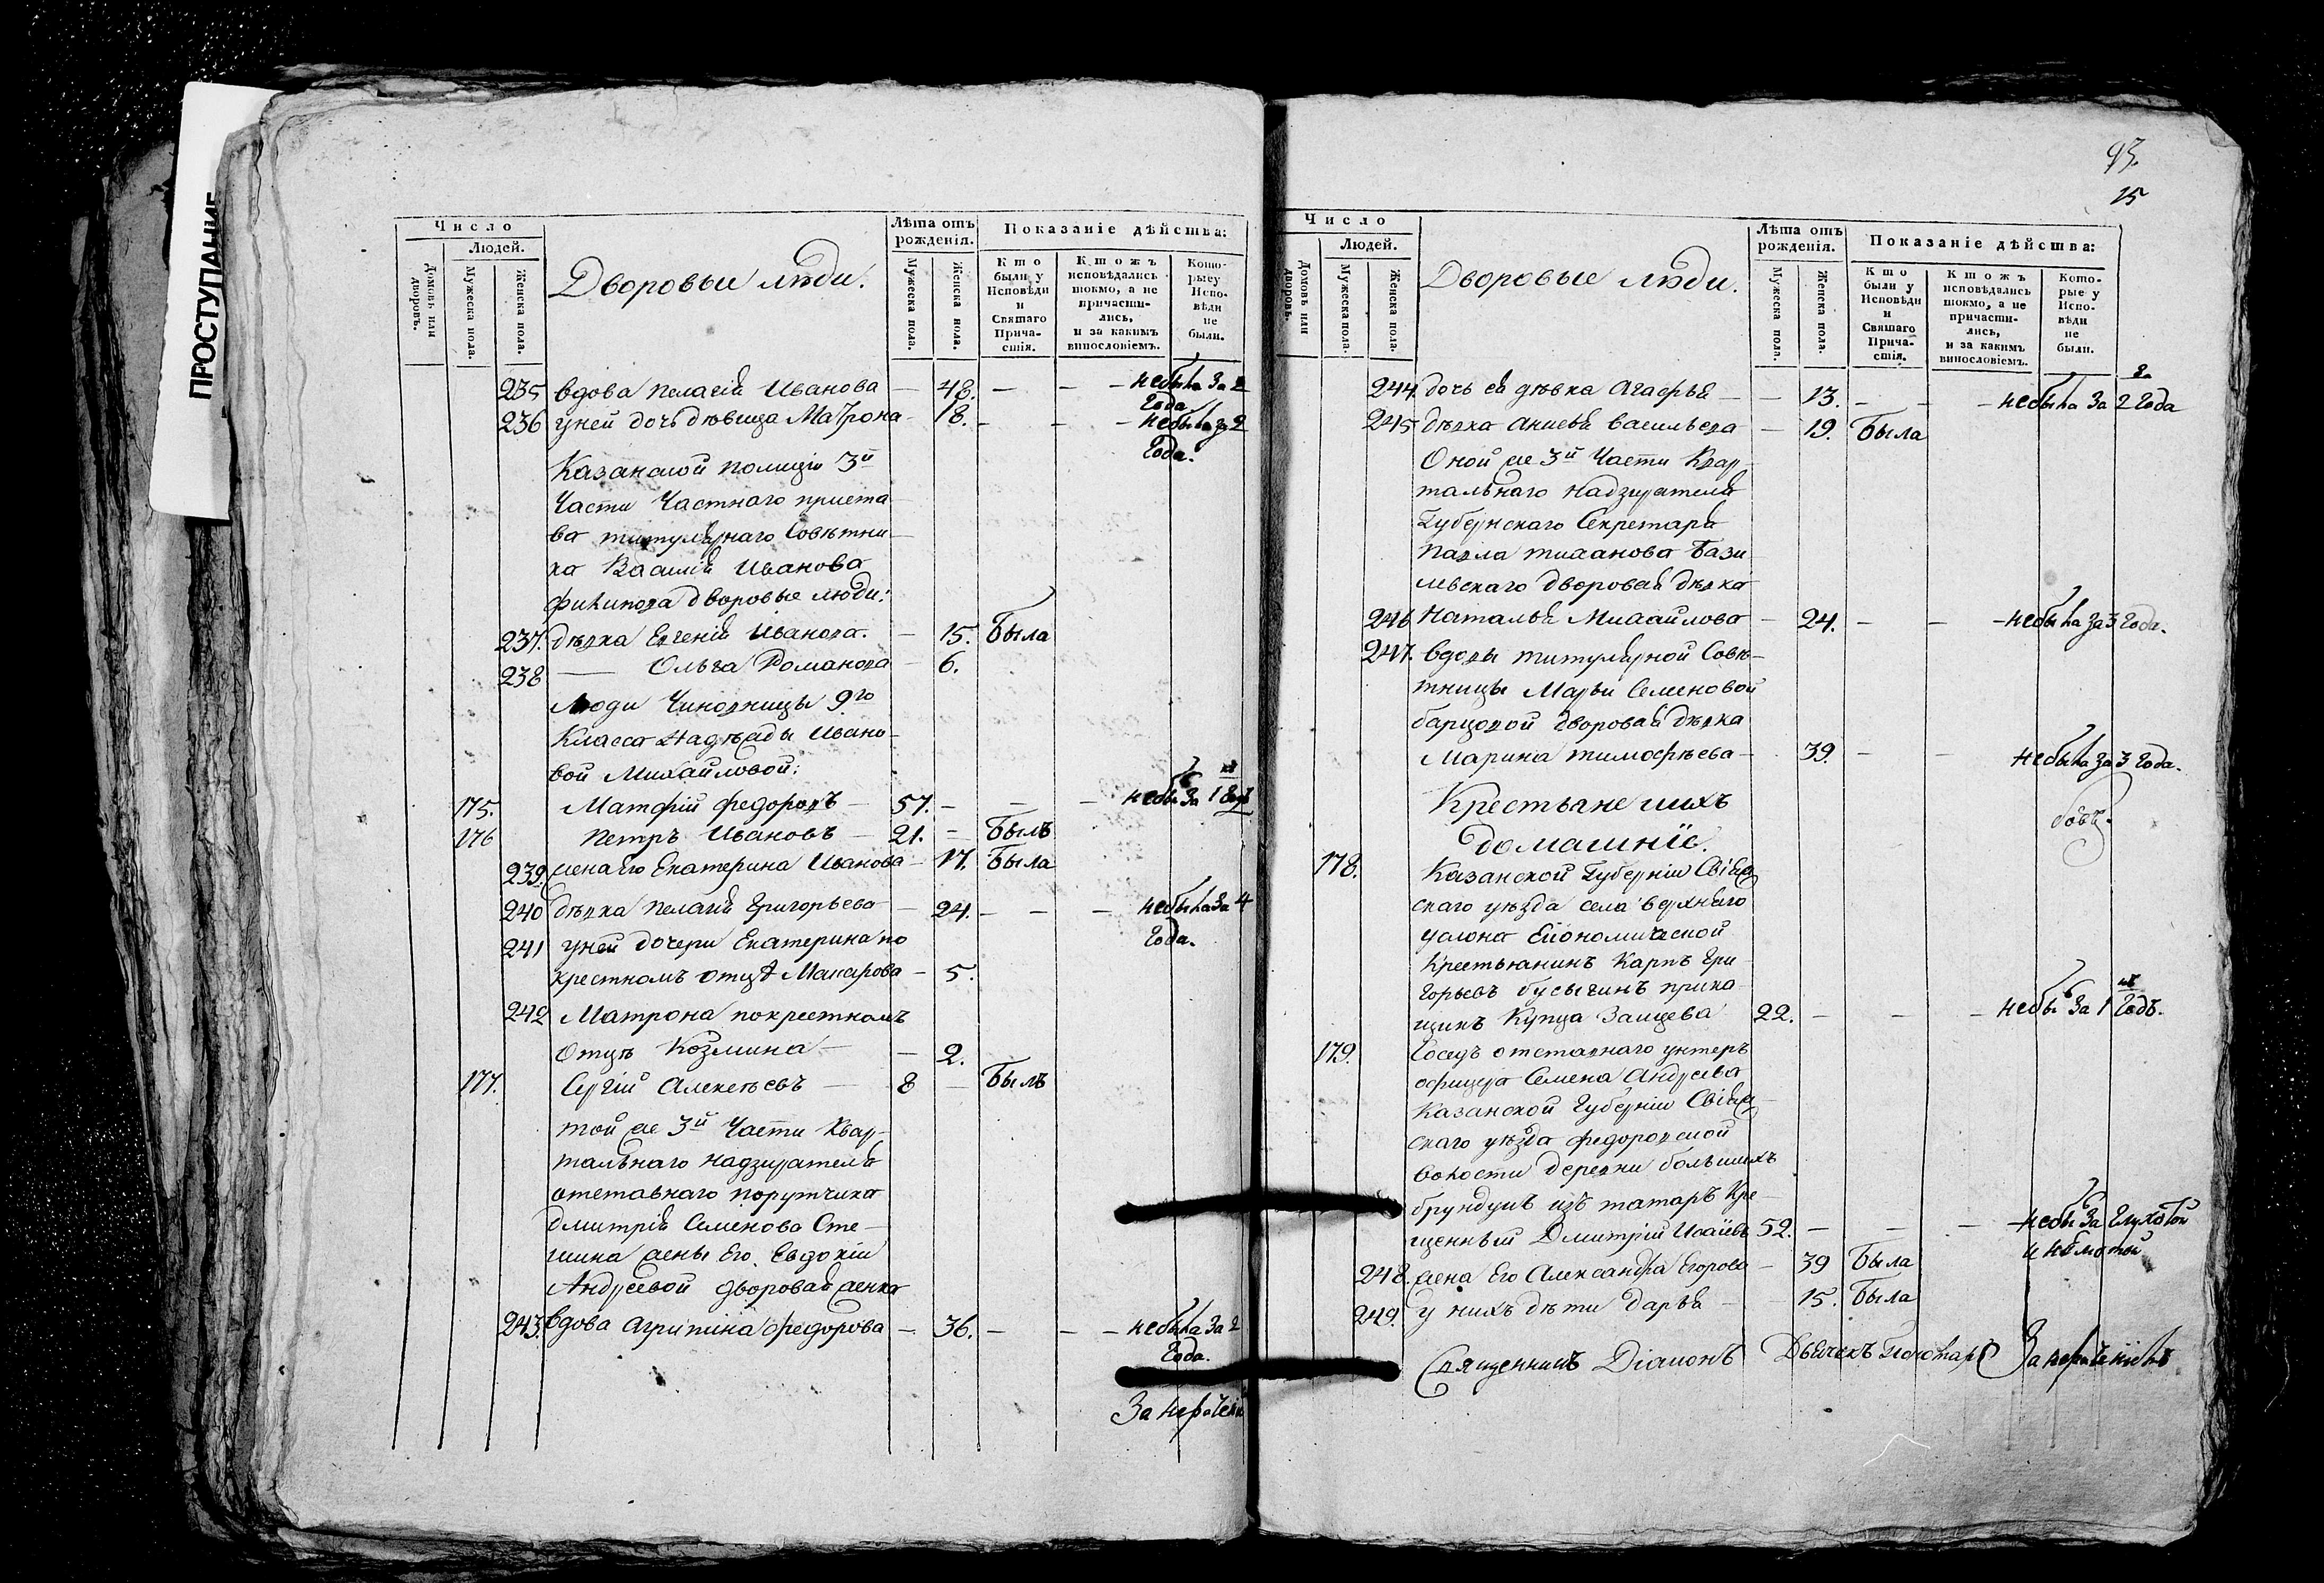 ПРОСТУПАНИЕ
Число
Людей.
Домовъ или дворовъ.
Мужеска пола.
Женска пола.
Дворовые люди.
Лѣта отъ рожденія.
Мужеска пола.
Женска пола.
Показаніе дѣйства:
Кто были у Исповѣди и Святаго Причастія.
Ктожъ исповѣдались токмо, а не причастились, и за какимъ винословіемъ.
Которыеу Исповѣди не были.
235 вдова Пелагія Иванова — 48. — — — небыла за 2 Года
236 уней дочь дѣвица Матрона — 18. — — — небыла за 2 Года.
Казанской полиціи 3й
Части Частнаго приста
ва титулярнаго Совѣтни
ка Василія Иванова
дворовые люди:
237. дѣвка Евгенія Иванова. — 15. Была
238 — Ольга Романова — 6.
Люди Чиновницы 9го
Класса Надѣжды Ивано
вой Михайловой:
175. Матфій Федоровъ — 57. — — — небы за 1 Годъ
176 Петръ Ивановъ — 21. — Былъ
239. жена Его Екатерина Иванова — 17. Была
240 дѣвка Пелагія Григорьева — 24. — — — небыла за 4 Года.
241 уней дочери Екатерина по
крестномъ отцѣ Макарова — 5.
242 Матрона покрестномъ
Отцѣ Козмина — — 2.
177. Сергій Алексѣевъ — 8 — Былъ
той же 3й Части Квар-
тальнаго Надзирателя
отставнаго порутчика
Дмитрія Семенова Сте-
шина жены Его Евдокіи
Андреевой дворовая женка
243. вдова Агрипина Федорова — 36. — — — небыла за 2 Года.
За нерачені
93.
15
Число
Людей.
Домовъ или дворовъ.
Мужеска пола.
Женска пола.
Дворовые люди.
Лѣта отъ рожденія.
Мужеска пола.
Женска пола.
Показаніе дѣйства:
Кто были у Исповѣди и Святаго Причастія.
Ктожъ исповѣдались токмо, а не причастились, и за какимъ винословіемъ.
Которые у Исповѣди не были.
244 дочь ея дѣвка Агафья — 13. — — — небыла за 2 Года
245 дѣвка Анисья Васильева — 19. Была
Оной же 3й Части Квар
тальнаго Надзирателя
Губернскаго Секретаря
Павла Тиханова Бази
левскаго дворовая дѣвка
246 Наталья Михайлова — 24. — — — небыла за 3 Года.
247. вдовы титулярной Совѣ-
тницы Марьи Семеновой
барцовой дворовая дѣвка
Марина Тимофѣева — 39. — — небыла за 3 Года.
Крестьяне ихъ
домашніе.
178. Казанской Губерніи Свіяж
скаго уѣзда села верхняго
услона Економической
Крестьянинъ Карпъ Гри
горьевъ Бусыгинъ прика
щикъ Купца 22. — — — небы за 1 Годъ.
179. Сосед отставнаго унтеръ
офицера Семена Андреева
Казанской Губерніи Свіяж
скаго уѣзда Федоровской
Волости деревни большихъ
брундукъ изъ татаръ Кре
щенный Дмитрій Исаіевъ 52. — — — небы за глухотой
и нѣмотой
248. жена Его Александра Егорова — 39 Была
249. у нихъ дѣти Дарья — 15. Была
Священникъ Діаконъ Дьячекъ Пономарь За нерачениемъ